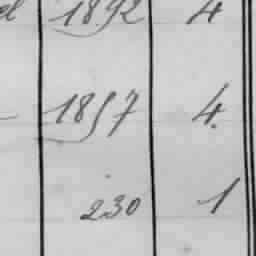 1892 4
1857 4.
230 1